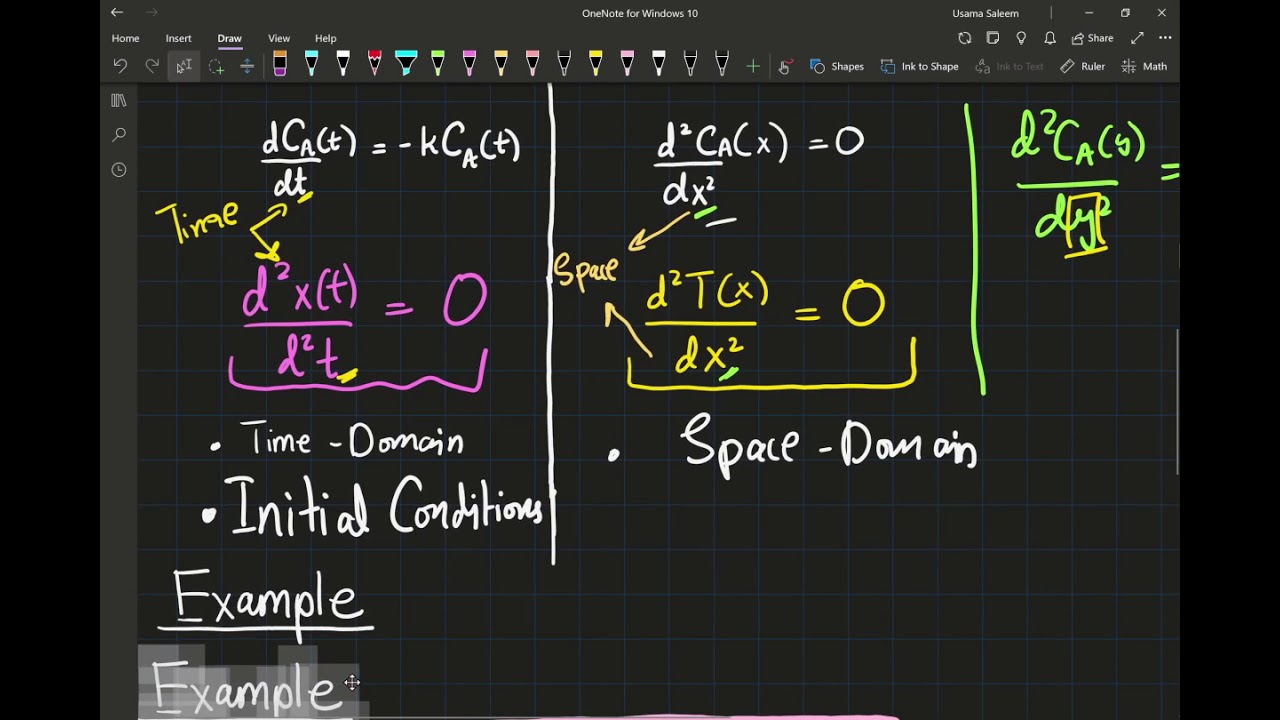 OneNote for Windows 10
Usama Saleem
Home Insert Draw View Help
Share
Shapes Ink to Shape Ink to Text Ruler Math
dC_A(t)/dt = -kC_A(t)
Time
d²x(t)/d²t = 0
• Time - Domain
• Initial Conditions
d²C_A(x)/dx² = 0
Space
d²T(x)/dx² = 0
• Space - Domain
d²C_A(y)/dy² =
Example
Example